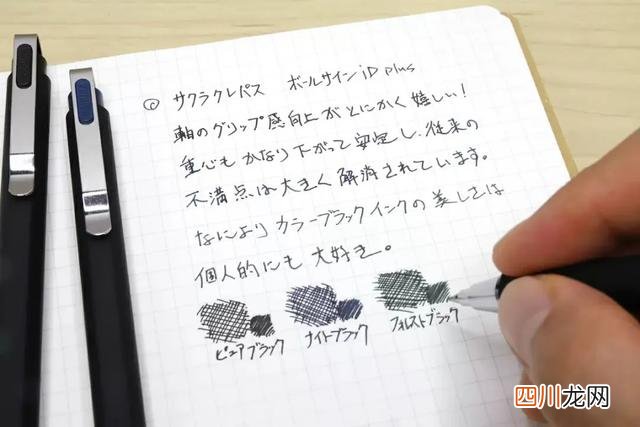 ◎ サクラクレパス ボールサインiD plus
軸のグリップ感向上がとにかく嬉しい!
重心もかなり下がって安定し、従来の
不満点は大きく解消されています。
なによりカラーブラックインクの美しさは
個人的にも大好き。
ピュアブラック ナイトブラック フォレストブラック
四川龙网